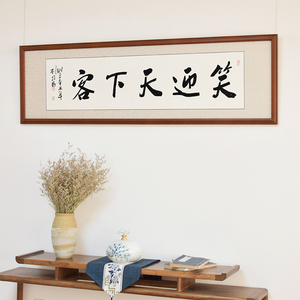 笑迎天下客